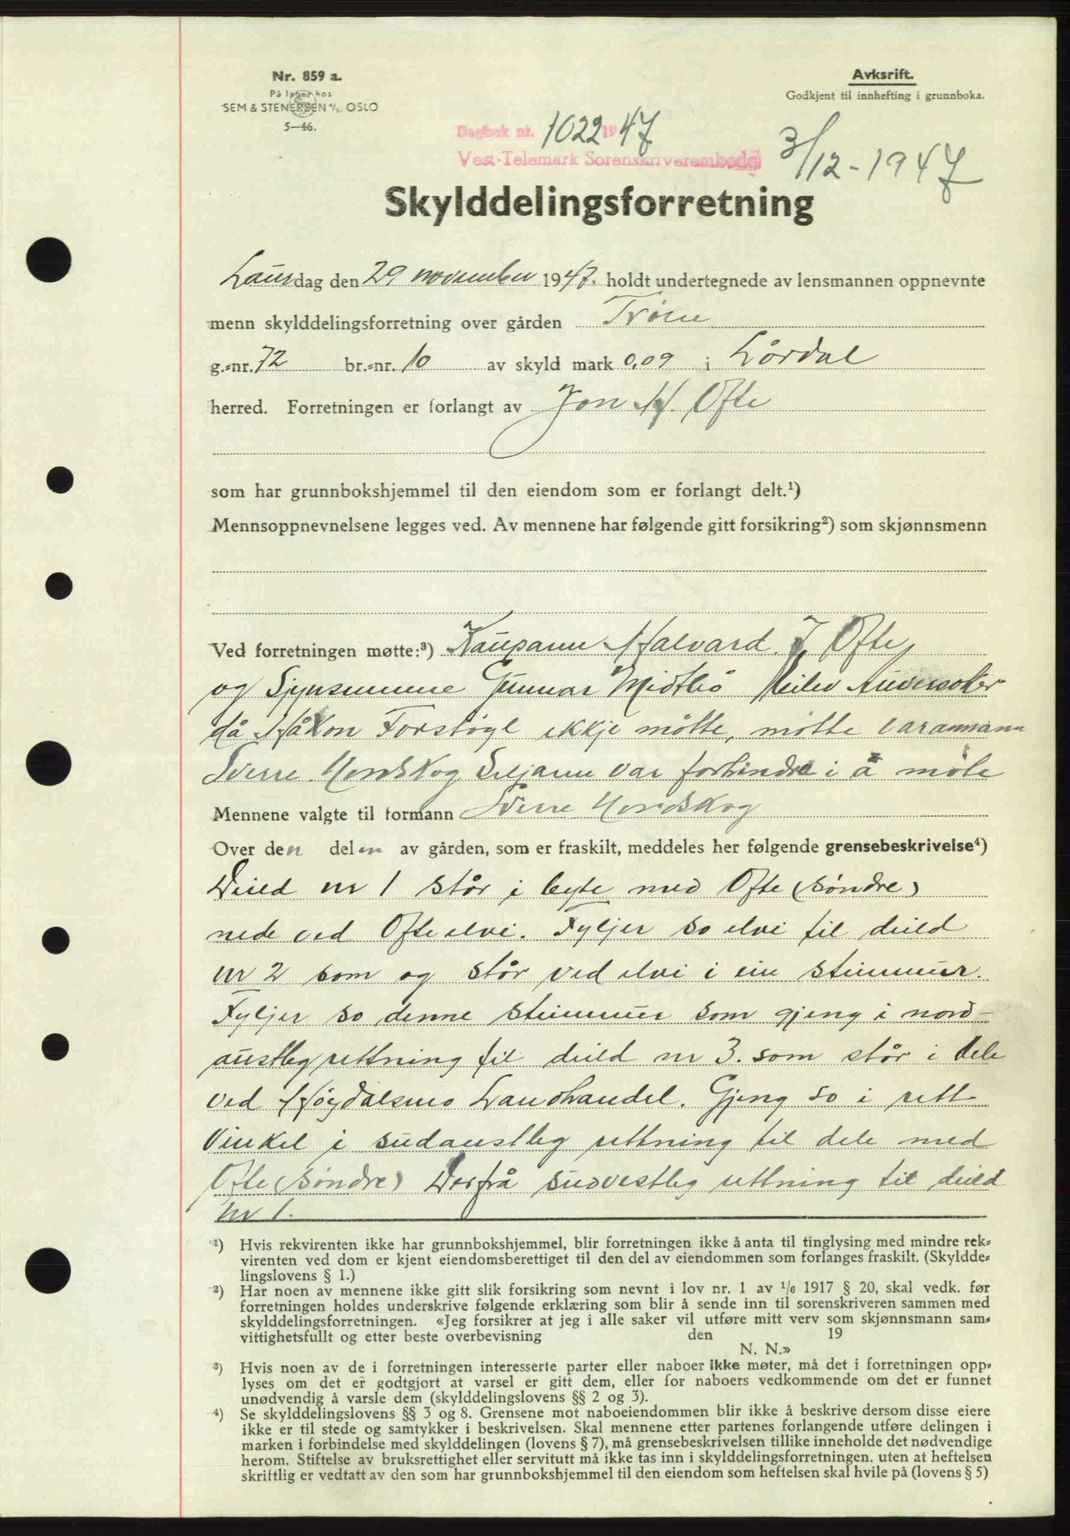 Nr. 859 a.
På lager hos
SEM & STENERSEN A/S. OSLO
5—46.
Avksrift.
Godkjent til innhefting i grunnboka.
Dagbok nr. 1022 1947
Vest-Telemark Sorenskriverembede
3/12 - 1947
Skylddelingsforretning
Laurdag den 29 november 1947. holdt undertegnede av lensmannen oppnevnte
menn skylddelingsforretning over gården Trøen
g.-nr. 72 br.-nr. 10 av skyld mark 0,09 i Lårdal
herred. Forretningen er forlangt av Jon H. Ofte
som har grunnbokshjemmel til den eiendom som er forlangt delt.¹)
Mennsoppnevnelsene legges ved. Av mennene har følgende gitt forsikring²) som skjønnsmenn
Ved forretningen møtte:³) Kaupann Halvard. J Ofte
og Synsmenne Gunnar Midtbø
då Håkon Forstøyl ikkje møtte, møtte varamann
Sverre Nordskog Seljarin var forhindra i å møte
Mennene valgte til formann Sverre Nordskog
Over den delen av gården, som er fraskilt, meddeles her følgende grensebeskrivelse⁴)
Deild nr 1 står i byte med Ofte (søndre)
nede ved Ofte elvi. Fyljer so elvi til deild
nr 2 som og står ved elvi i ein steinmur.
Fyljer so denne steinmur som gjeng i nord-
austleg rettning til deild nr 3. som står i dele
ved Høydalsmo Landhandel. Gjeng so i rett
vinkel i sudaustleg rettning til dele med
Ofte (søndre) Derfrå sudvestleg rettning til deild
nr 1.
¹) Hvis rekvirenten ikke har grunnbokshjemmel, blir forretningen ikke å anta til tinglysing med mindre rek-
virenten ved dom er kjent eiendomsberettiget til den del av eiendommen som forlanges fraskilt. (Skyldde-
lingslovens § 1.)
²) Har noen av mennene ikke gitt slik forsikring som nevnt i lov nr. 1 av 1/6 1917 § 20, skal vedk. før
forretningen holdes underskrive følgende erklæring som blir å sende inn til sorenskriveren sammen med
skylddelingsforretningen. «Jeg forsikrer at jeg i alle saker vil utføre mitt verv som skjønnsmann sam-
vittighetsfullt og etter beste overbevisning den 19
N. N.»
³) Hvis noen av de i forretningen interesserte parter eller naboer ikke møter, må det i forretningen opp-
lyses om det er godtgjort at varsel er gitt dem, eller for naboers vedkommende om det er funnet
unødvendig å varsle dem (skylddelingslovens §§ 2 og 3).
⁴) Se skylddelingslovens §§ 3 og 8. Grensene mot naboeiendommen blir ikke å beskrive dersom disse eiere
ikke er til stede og samtykker i beskrivelsen. Skal mennene etter partenes forlangende utføre delingen i
marken i forbindelse med skylddelingen (lovens § 7), må grensebeskrivelsen tillike inneholde det nødvendige
herom. Stiftelse av bruksrettighet eller servitutt må ikke tas inn i skylddelingsforretningen. uten at heftelsen
skriftlig er vedtatt av den som har grunnbokshjemmel til den eiendom som heftelsen skal hvile på (lovens § 5)